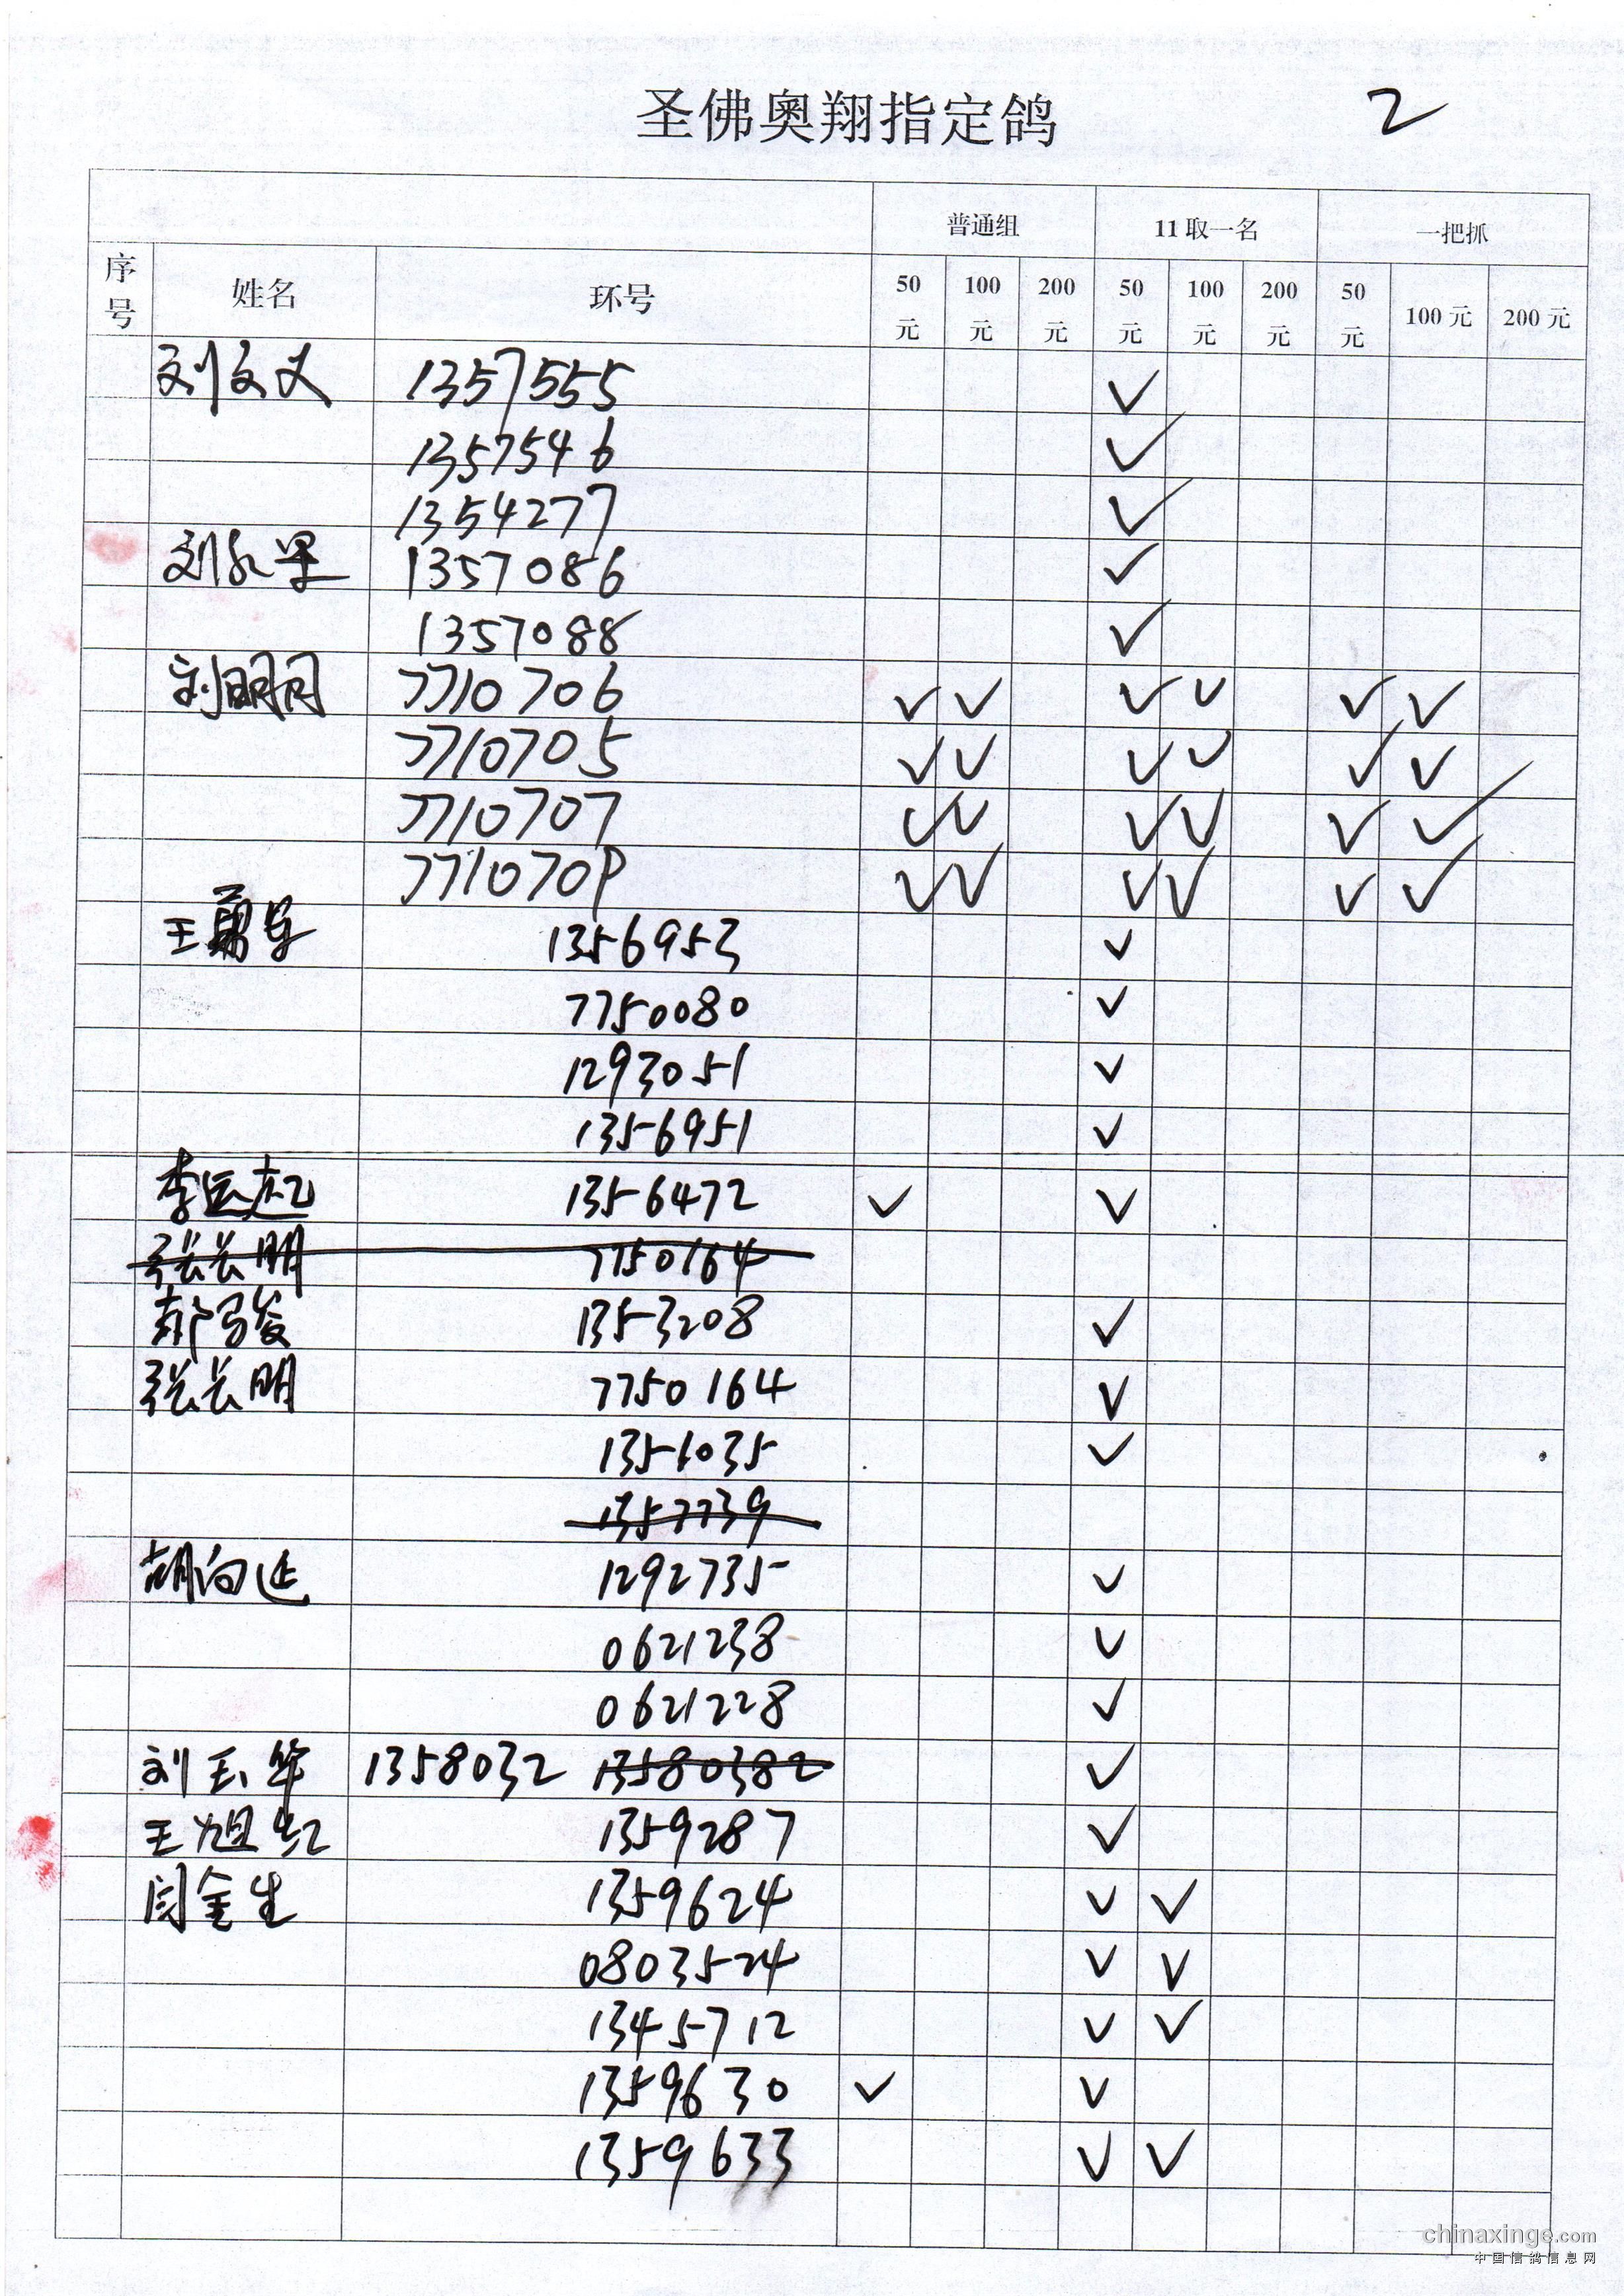 圣佛奥翔指定鸽 2
普通组 11取一名 一把抓
序号 姓名 环号 50元 100元 200元 50元 100元 200元 50元 100元 200元
刘文义 1357555 ✓
1357546 ✓
1354277 ✓
刘 1357086 ✓
1357088 ✓
刘明月 7710706 ✓ ✓ ✓ ✓ ✓ ✓
7710705 ✓ ✓ ✓ ✓ ✓ ✓
7710707 ✓ ✓ ✓ ✓ ✓ ✓
7710709 ✓ ✓ ✓ ✓ ✓ ✓
王勇军 1356953 ✓
7750080 ✓
1293051 ✓
1356951 ✓
李运起 1356472 ✓ ✓
张长明 7750164
郝骏 1353208 ✓
张长明 7750164 ✓
1351035 ✓
1357739
胡向廷 1292735 ✓
0621238 ✓
0621228 ✓
刘玉华 1358032 13580382 ✓
王旭红 1359287 ✓
闫金生 1359624 ✓ ✓
0803524 ✓ ✓
1345712 ✓ ✓
1359630 ✓ ✓
1359633 ✓ ✓
chinaxinge.com
中国信鸽信息网